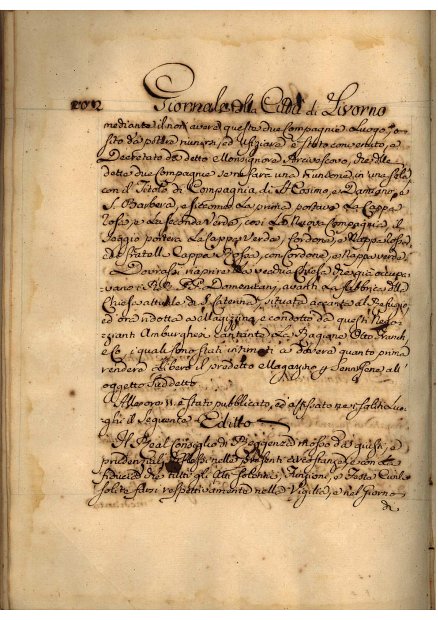 Giornale della Città di Livorno
mediante il non avere queste due Compagnie Luogo, o
sito da potersi runire, ed è stato convenuto, e
Decretato da detto Monsignore Arcivescovo, che delle
dette due Compagnie se ne farà una runendone in una sola
con il Titolo di Compagnia di S. Cosimo e Damiano, e
S. Barbera, e siccome La prima portava La Cappa
Rossa, e La seconda Verde, così La Nuova Compagnia, il
Seggio porterà La Cappa Verde, Cordone, e Nappa Rossa
ed i Fratelli Cappa Rossa, con Cordone, e Nappa verde.
Dovrassi riaprire La vecchia Chiesa che già occupa
vano i RR. PP. Domenicani, avanti La fabbrica della
Chiesa attuale di S. Caterina, situata accanto al Refugio,
ed ora ridotta a Magazzino, e condotto da questi Nego
zianti Amburghesi cantante La Ragione Otto Frank
e Co, i quali sono stati intimati a dovere quanto prima
rendere Libero il predetto Magazzino per
oggetto suddetto.
Alle ore 11. è stato pubblicato, ed affissato nei soliti Luo
ghi il Seguente Editto
Il Real Consiglio di Reggenza mosso da giusti, e
prudenziali riflessi nelle presenti circostanze, e con La
fiducia che tutti gli Atti solenni, Funzioni, e Feste
solite farsi respettivamente nella Vigilia, e nel Giorno
di